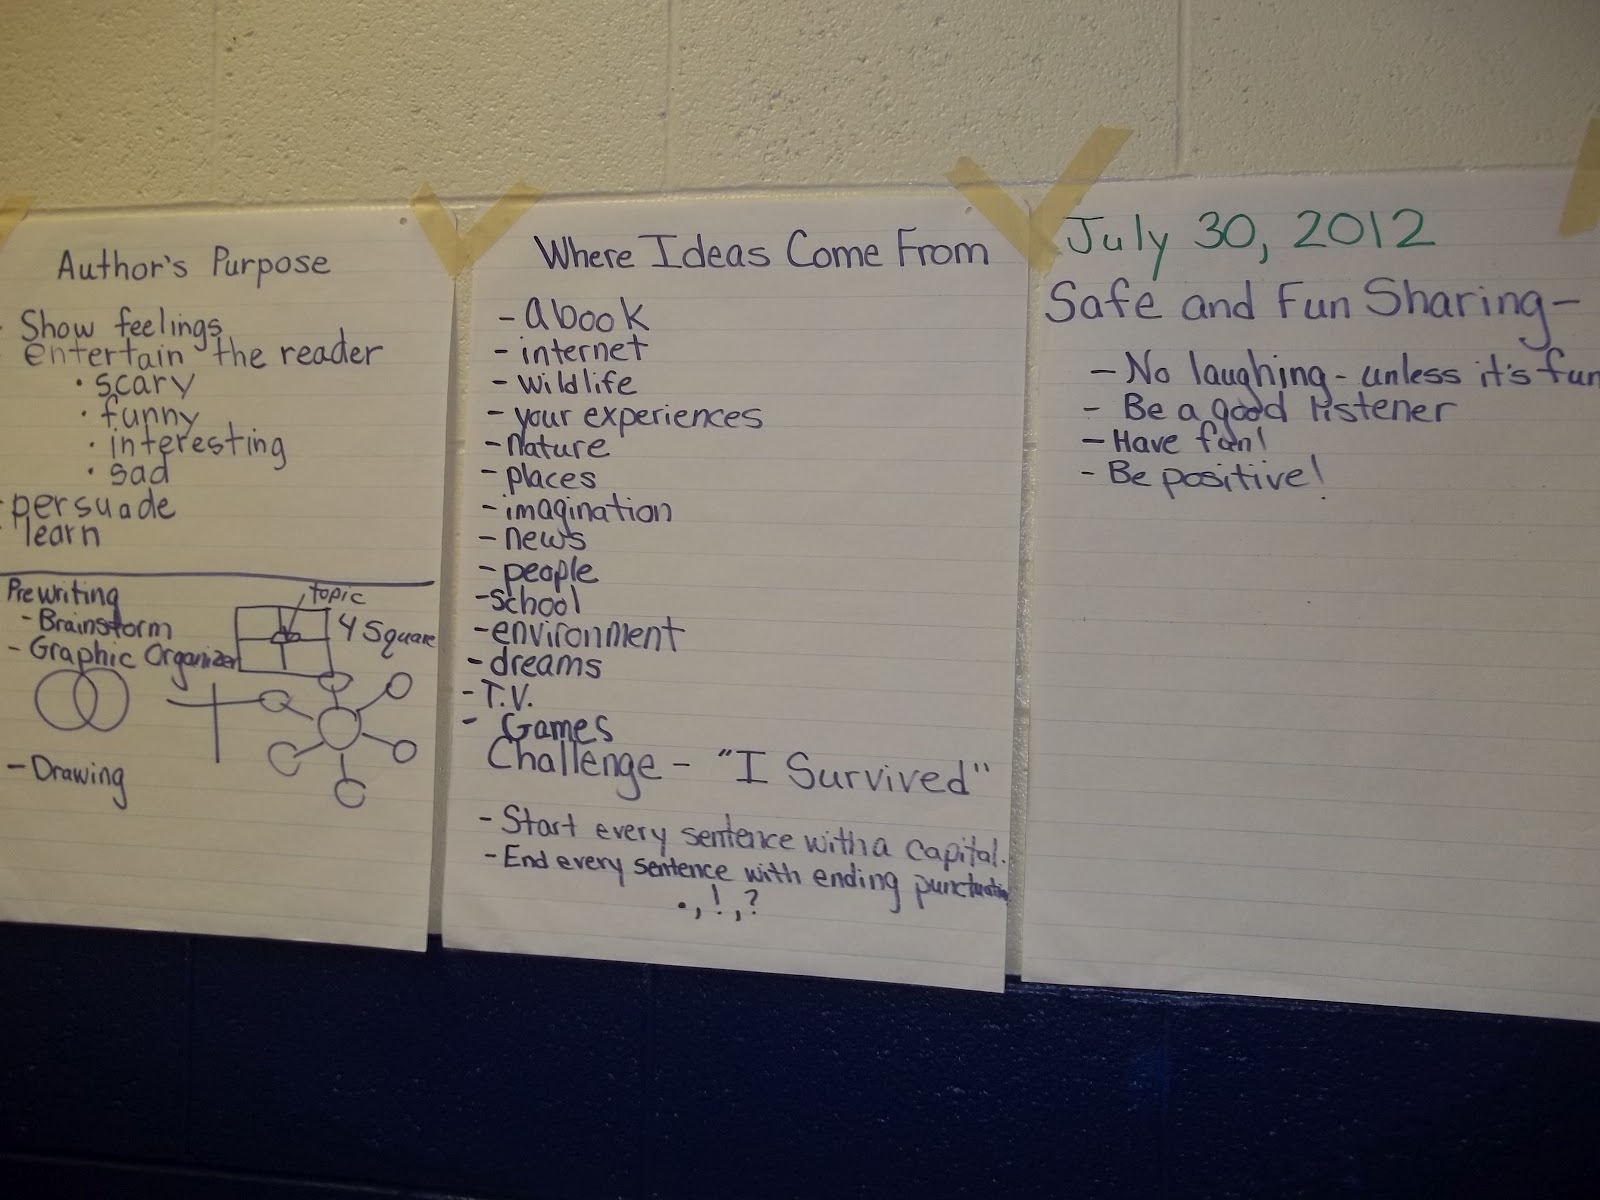 Author's Purpose
- Show feelings
- entertain the reader
• scary
• funny
• interesting
• sad
- persuade
- learn
Prewriting
- Brainstorm
- Graphic Organizer
topic
4 Square
- Drawing
Where Ideas Come From
- a book
- internet
- wildlife
- your experiences
- nature
- places
- imagination
- news
- people
- school
- environment
- dreams
- T.V.
- Games
Challenge - "I Survived"
- Start every sentence with a capital.
- End every sentence with ending punctuation
. , ! , ?
July 30, 2012
Safe and Fun Sharing-
- No laughing - unless it's fun
- Be a good listener
- Have fun!
- Be positiive!